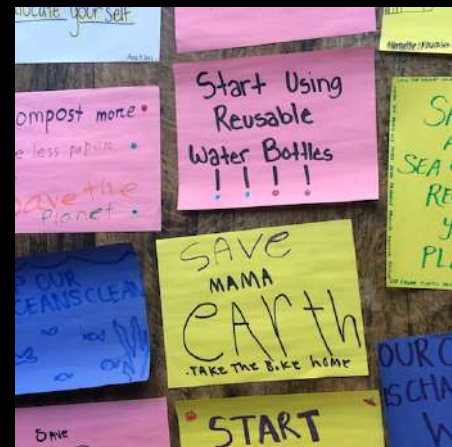 ucate your self
ompost more
e less paper
ave the
planet
Start Using
Reusable
Water Bottles
! ! ! !
SEA
RE
PL
OUR
CEANS CLEAN
SAVE
MAMA
EARTH
.TAKE THE BIKE HOME
OUR C
IS CHA
SAVE
START